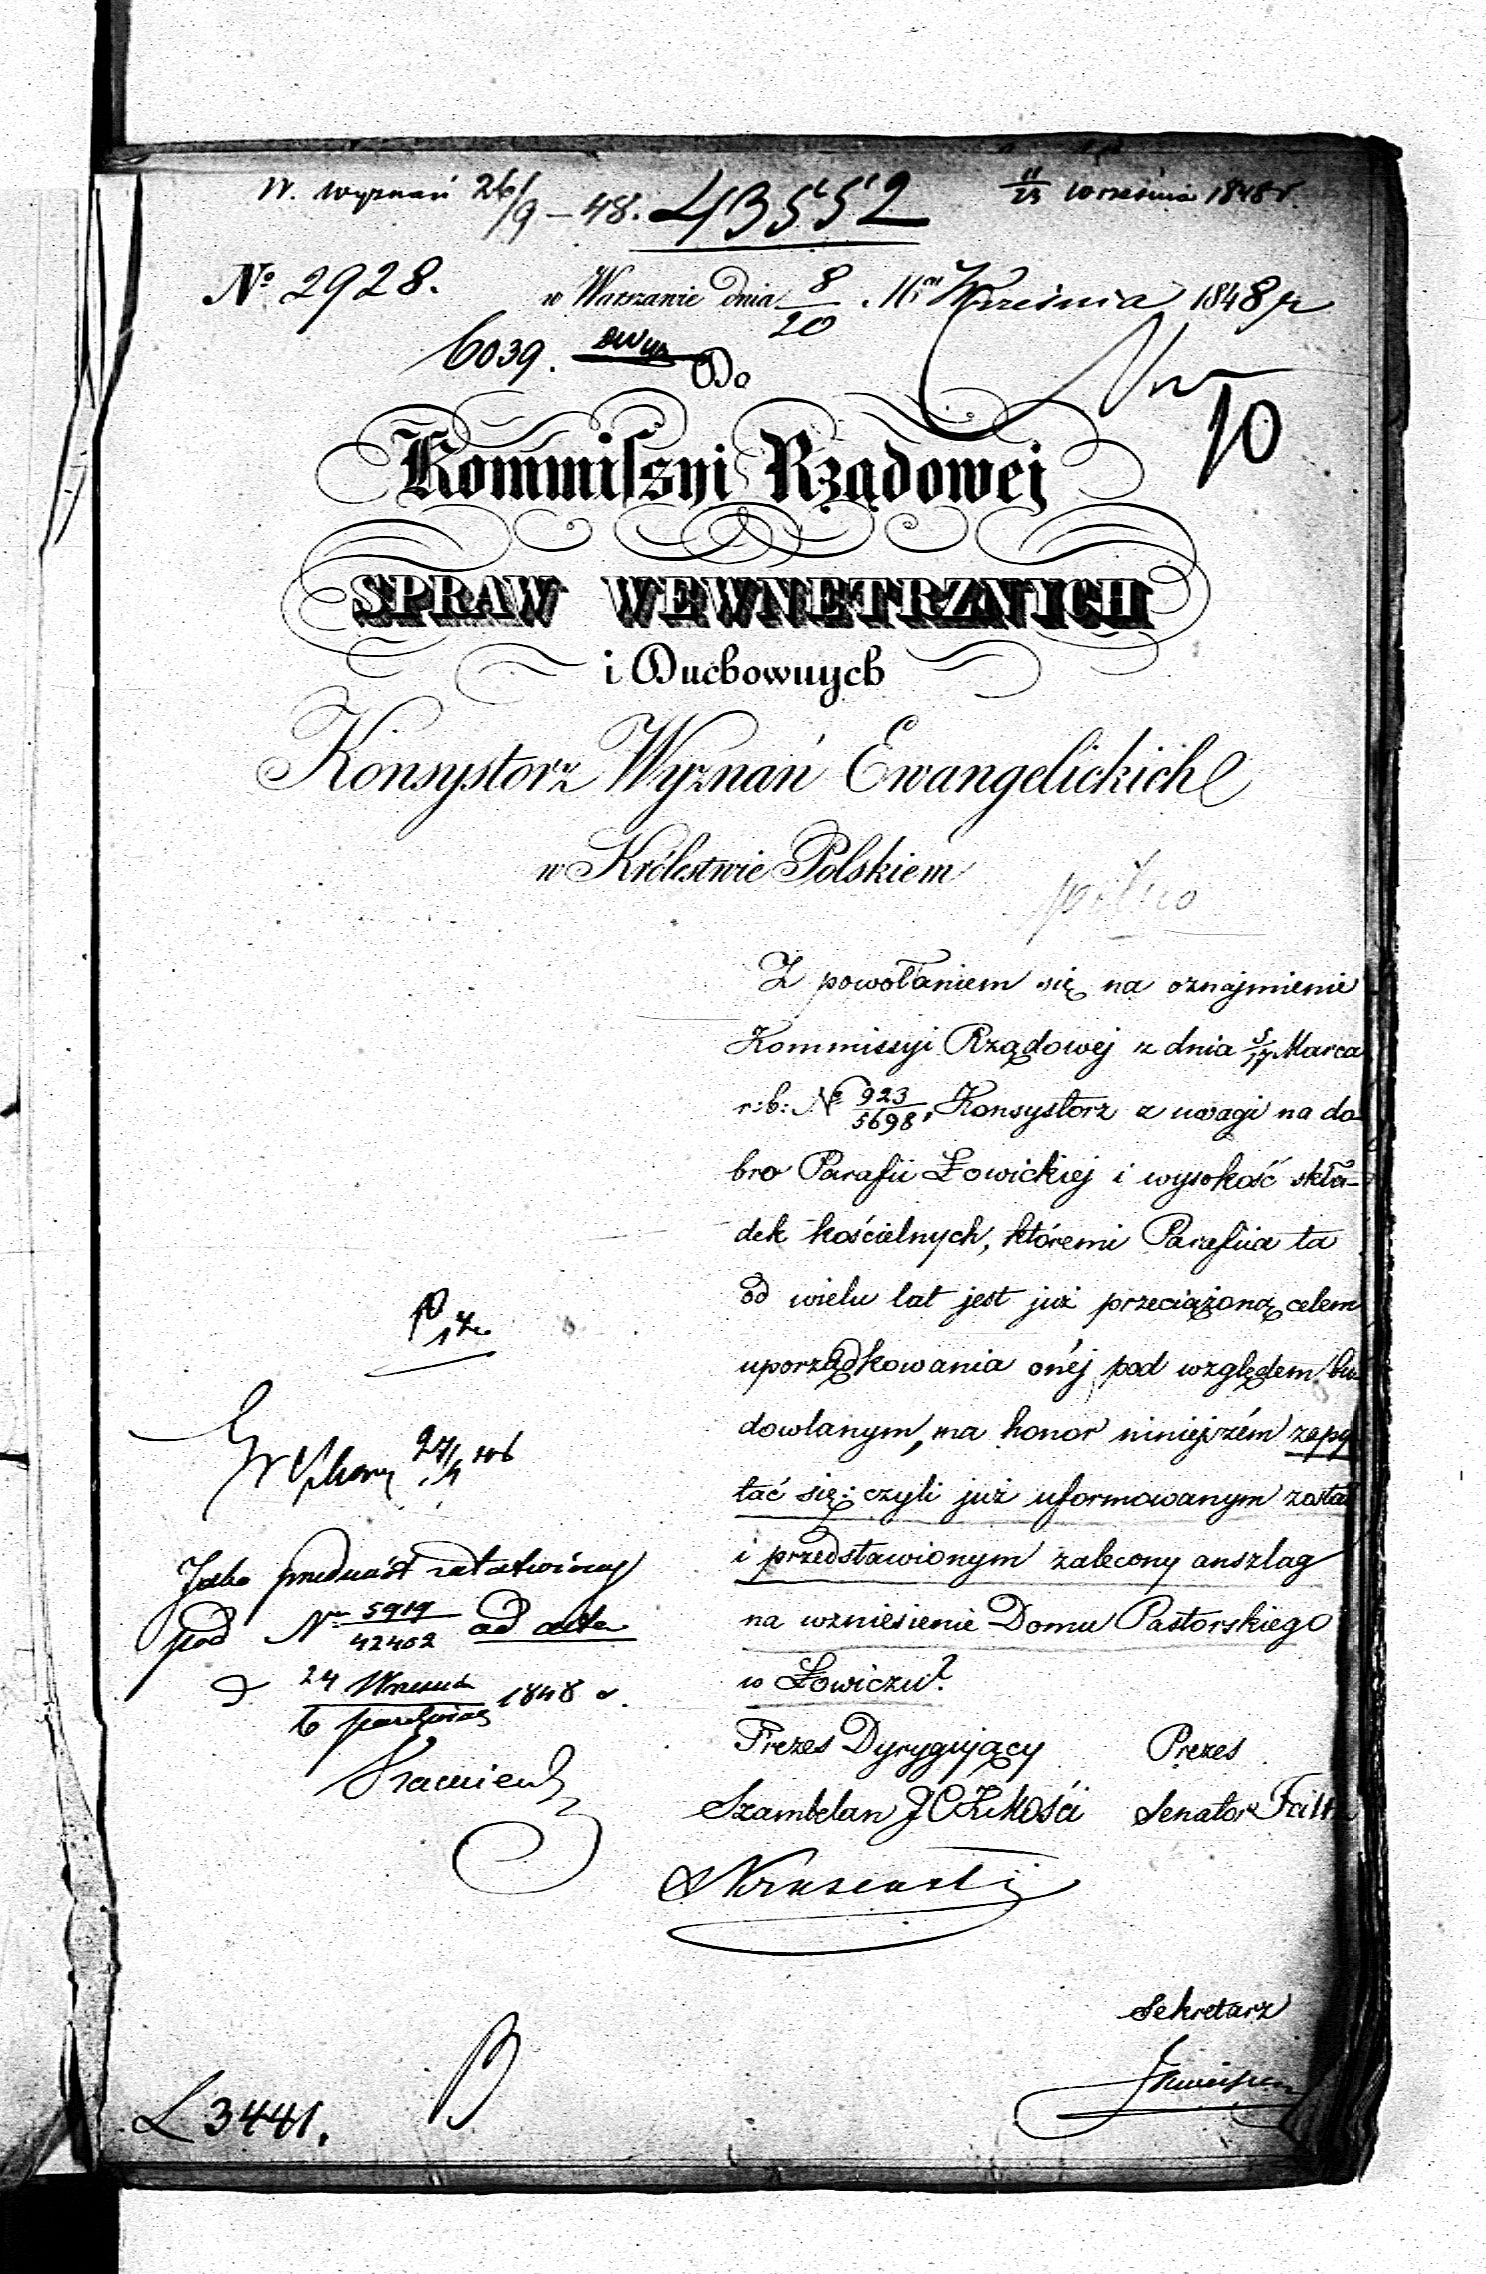 W. wyznań 26/9 – 48. 43552 11/23 Września 1848 r.
No 2928. w Warszawie dnia 8/20 Września 1848 r
6039.
Do
10
Kommissyi Rządowej
SPRAW WEWNĘTRZNYCH
i Duchownych
Konsystorz Wyznań Ewangelickich
w Królestwie Polskiem
pilno
Z powołaniem się na oznajmienie
Kommissyi Rządowej z dnia 5/17 Marca
r: b: No 923/5698, Konsystorz z uwagi na do
bro Parafii Łowickiej i wysokość skła-
dek kościelnych, któremi Parafiia ta
od wielu lat jest już przeciążoną celem
uporządkowania onéj pod względem bu
dowlanym, ma honor niniejszém zapy
tać się: czyli już uformowanym został
i przedstawionym zalecony anszlag
na wzniesienie Domu Pastorskiego
w Łowiczu?
Prezes Dyrygujący Prezes
Szambelan JCKMości Senator
Sekretarz
Jako przedmiot załatwiony
pod Nr 5919/42402 ad acta
d 24 Wrześ. / 6 Październ. 1848 r.
L 3441.